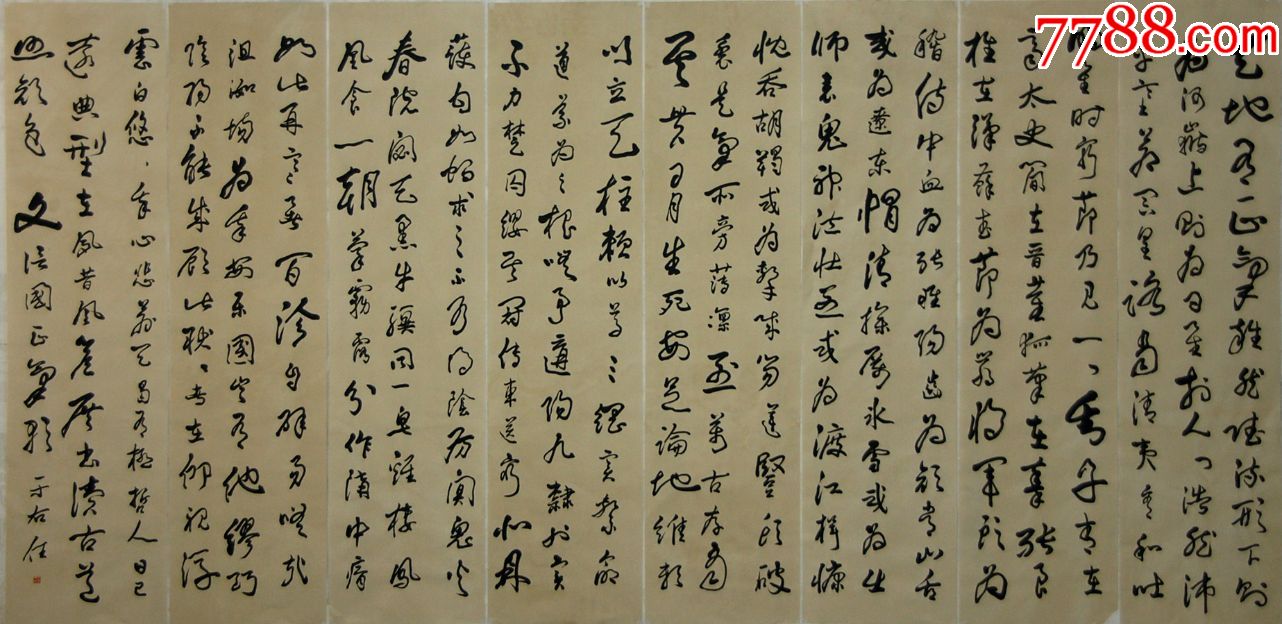 7788.com
天地有正氣雜然賦流形下則
為河嶽上則為日星於人曰浩然沛
乎塞蒼冥皇路當清夷含和吐
明庭時窮節乃見一一垂丹青在
齊太史簡在晉董狐筆在秦張良
椎在漢蘇武節為嚴將軍頭為
嵇侍中血為張睢陽齒為顏常山舌
或為遼東帽清操厲冰雪或為出
師表鬼神泣壯烈或為渡江楫慷
慨吞胡羯或為擊賊笏逆豎頭破
裂是氣所旁薄凜烈萬古存當
其貫日月生死安足論地維賴
以立天柱賴以尊三綱實繫命
道義為之根嗟予遘陽九隸也實
不力楚囚纓其冠傳車送窮北鼎
鑊甘如飴求之不可得陰房闃鬼火
春院閟天黑牛驥同一皂雞棲鳳
凰食一朝蒙霧露分作溝中瘠
如此再寒暑百沴自辟易嗟哉
沮洳場為我安樂國豈有他繆巧
陰陽不能賊顧此耿〻在仰視浮
雲白悠〻我心悲蒼天曷有極哲人日已
遠典型在夙昔風簷展書讀古道
照顏色 文信國正氣歌 于右任